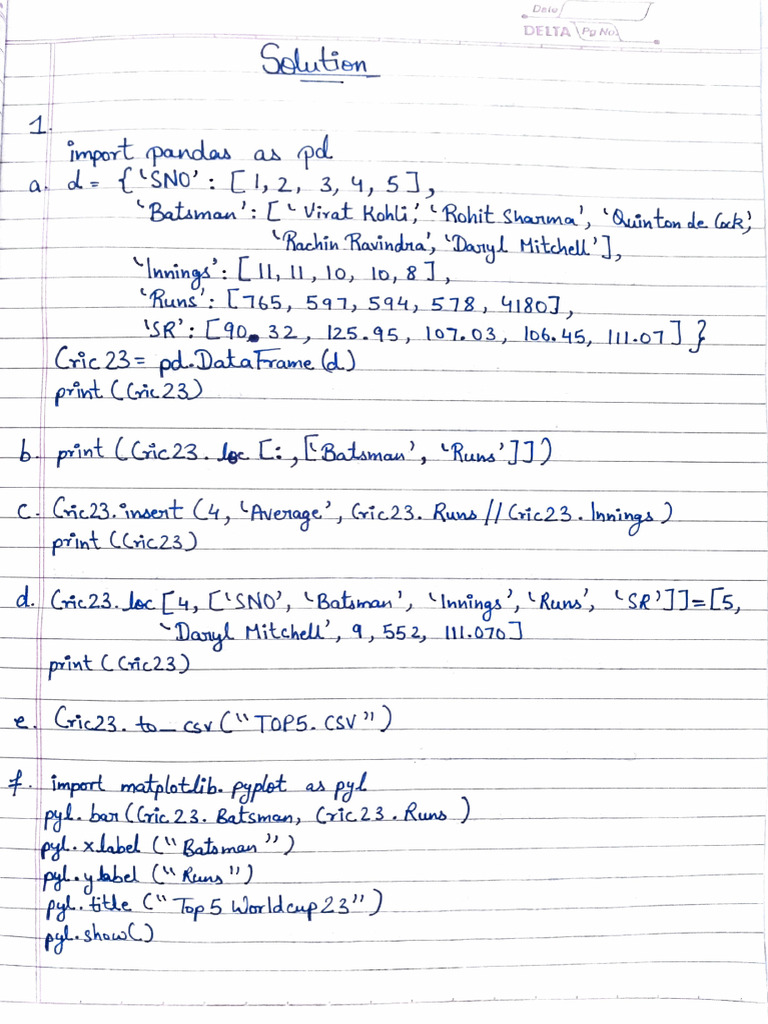 Date
DELTA Pg No
Solution
1.
import pandas as pd
a. d = {'SNO': [1, 2, 3, 4, 5],
'Batsman': ['Virat Kohli', 'Rohit Sharma', 'Quinton de Cock',
'Rachin Ravindra', 'Daryl Mitchell'],
'Innings': [11, 11, 10, 10, 8],
'Runs': [765, 597, 594, 578, 4180],
'SR': [90.32, 125.95, 107.03, 106.45, 111.07]}
Cric23 = pd.DataFrame(d)
print(Cric23)
b. print(Cric23.loc[:,['Batsman', 'Runs']])
c. Cric23.insert(4, 'Average', Cric23.Runs//Cric23.Innings)
print(Cric23)
d. Cric23.loc[4, ['SNO', 'Batsman', 'Innings', 'Runs', 'SR']]=[5,
'Daryl Mitchell', 9, 552, 111.070]
print(Cric23)
e. Cric23.to_csv("TOP5.CSV")
f. import matplotlib.pyplot as pyl
pyl.bar(Cric23.Batsman, Cric23.Runs)
pyl.xlabel("Batsman")
pyl.ylabel("Runs")
pyl.title("Top 5 Worldcup23")
pyl.show()